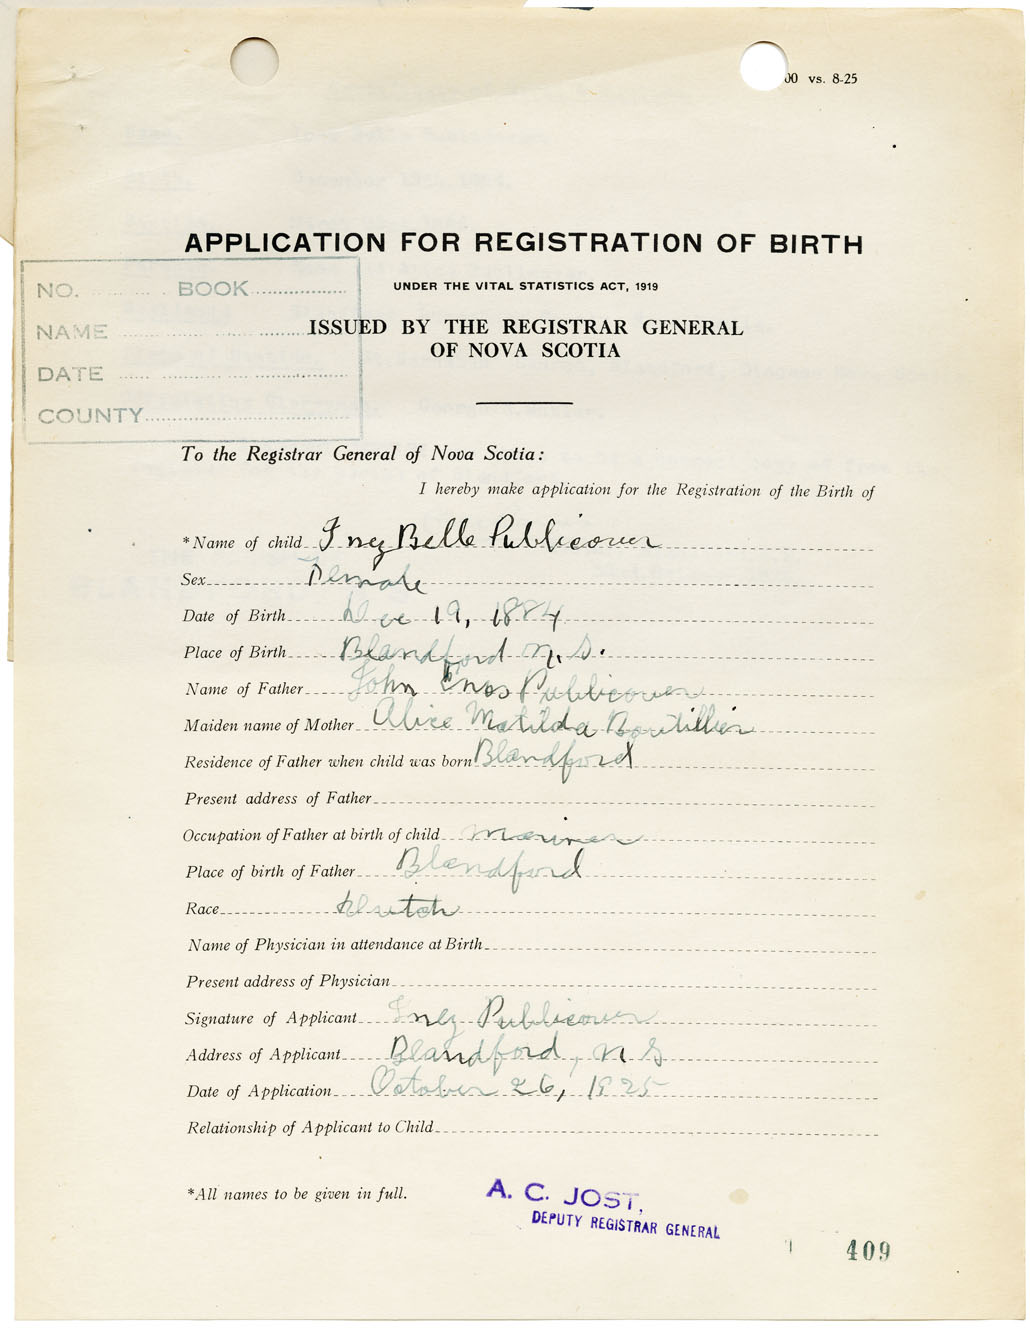 00 vs. 8-25
APPLICATION FOR REGISTRATION OF BIRTH
UNDER THE VITAL STATISTICS ACT, 1919
ISSUED BY THE REGISTRAR GENERAL
OF NOVA SCOTIA
NO. BOOK
NAME
DATE
COUNTY
To the Registrar General of Nova Scotia:
I hereby make application for the Registration of the Birth of
*Name of child Inez Belle Publicover
Sex Female
Date of Birth Dec 19, 1884
Place of Birth Blandford N.S.
Name of Father John Enos Publicover
Maiden name of Mother Alice Matilda Boutillier
Residence of Father when child was born Blandford
Present address of Father
Occupation of Father at birth of child Mariner
Place of birth of Father Blandford
Race Dutch
Name of Physician in attendance at Birth
Present address of Physician
Signature of Applicant Inez Publicover
Address of Applicant Blandford, N S
Date of Application October 26, 1925
Relationship of Applicant to Child
*All names to be given in full.
A. C. JOST,
DEPUTY REGISTRAR GENERAL
409